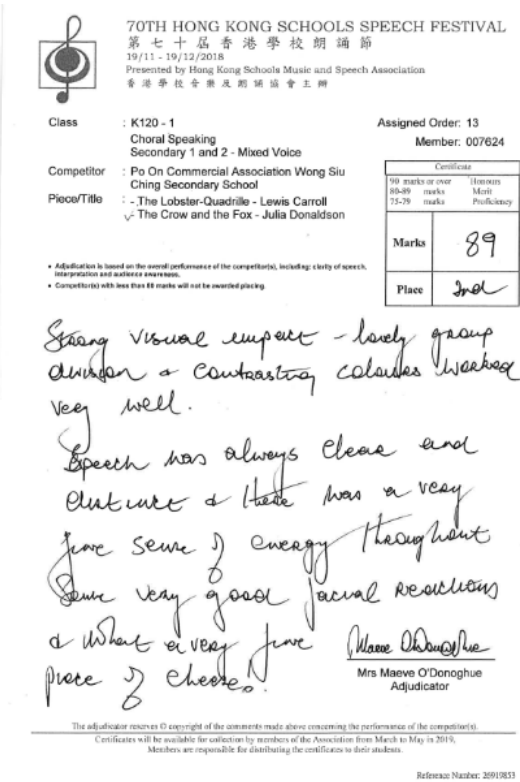 70TH HONG KONG SCHOOLS SPEECH FESTIVAL
第七十屆香港學校朗誦節
19/11 - 19/12/2018
Presented by Hong Kong Schools Music and Speech Association
香港學校音樂及朗誦協會主辦
Class : K120 - 1
Choral Speaking
Secondary 1 and 2 - Mixed Voice
Assigned Order: 13
Member: 007624
Competitor : Po On Commercial Association Wong Siu
Ching Secondary School
Piece/Title : - The Lobster-Quadrille - Lewis Carroll
- The Crow and the Fox - Julia Donaldson
Certificate
90 marks or over Honours
80-89 marks Merit
75-79 marks Proficiency
Marks 89
Place 2nd
• Adjudication is based on the overall performance of the competitor(s), including: clarity of speech,
interpretation and audience awareness.
• Competitor(s) with less than 80 marks will not be awarded placing.
Strong visual impact - lovely group
division & contrasting colours worked
very well.
Speech was always clear and
distinct & there was a very
fine sense of energy throughout
Some very good facial reactions
& what a very fine
piece of cheese!
Maeve O'Donoghue
Mrs Maeve O'Donoghue
Adjudicator
The adjudicator reserves © copyright of the comments made above concerning the performance of the competitor(s).
Certificates will be available for collection by members of the Association from March to May in 2019.
Members are responsible for distributing the certificates to their students.
Reference Number: 26919853